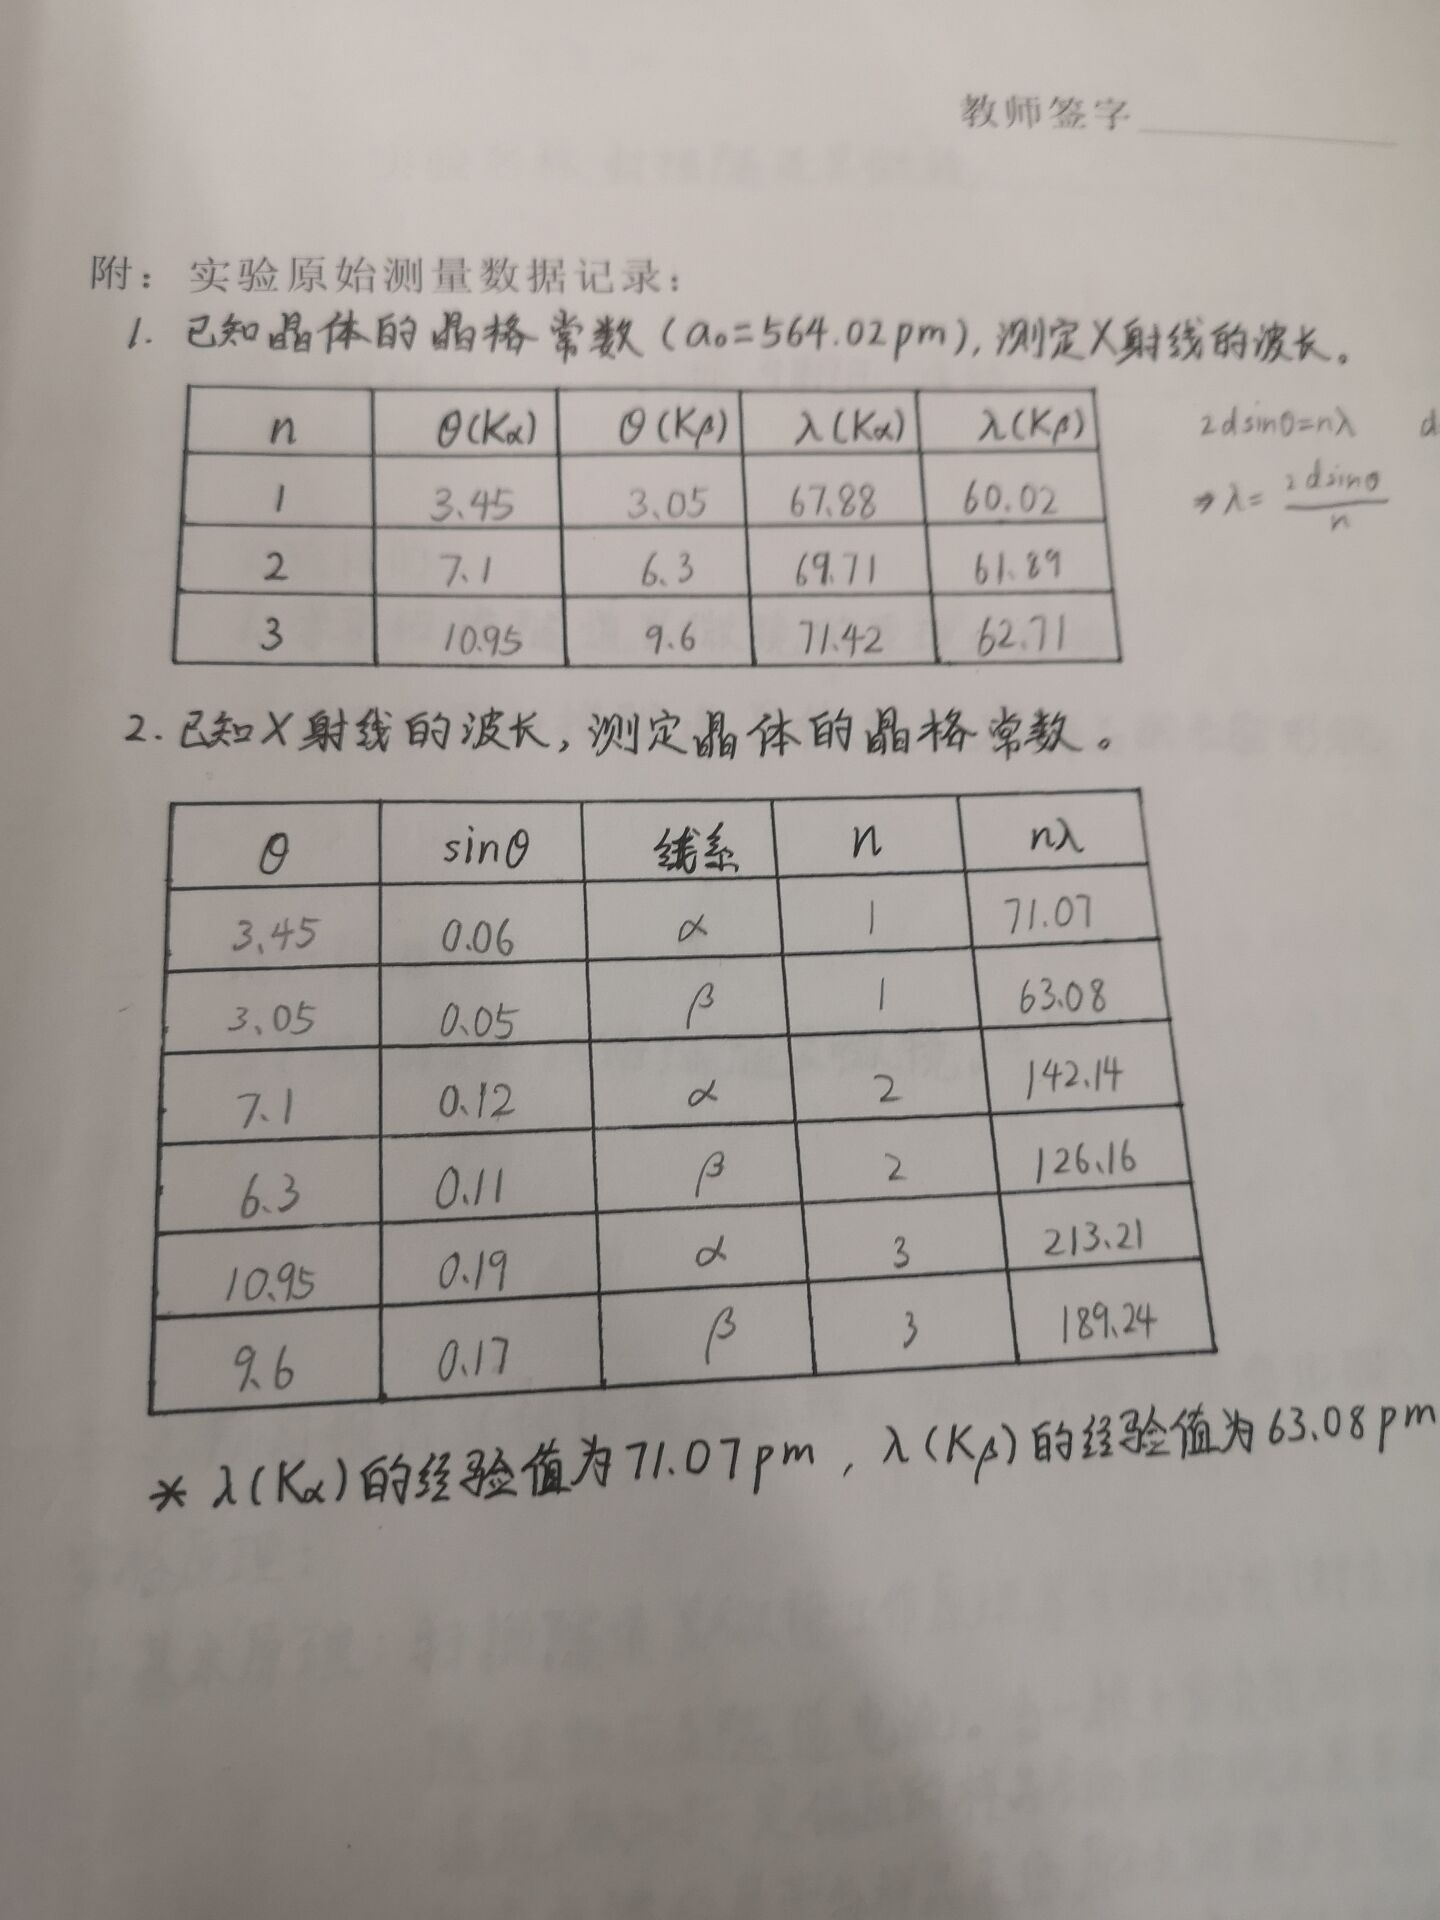 教师签字
附：实验原始测量数据记录：
1. 已知晶体的晶格常数(a₀=564.02pm),测定X射线的波长。
n θ(Kα) θ(Kβ) λ(Kα) λ(Kβ)
1 3.45 3.05 67.88 60.02
2 7.1 6.3 69.71 61.89
3 10.95 9.6 71.42 62.71
2dsinθ=nλ d
⇒λ= 2dsinθ/n
2. 已知X射线的波长,测定晶体的晶格常数。
θ sinθ 线系 n nλ
3.45 0.06 α 1 71.07
3.05 0.05 β 1 63.08
7.1 0.12 α 2 142.14
6.3 0.11 β 2 126.16
10.95 0.19 α 3 213.21
9.6 0.17 β 3 189.24
* λ(Kα)的经验值为71.07pm, λ(Kβ)的经验值为63.08pm